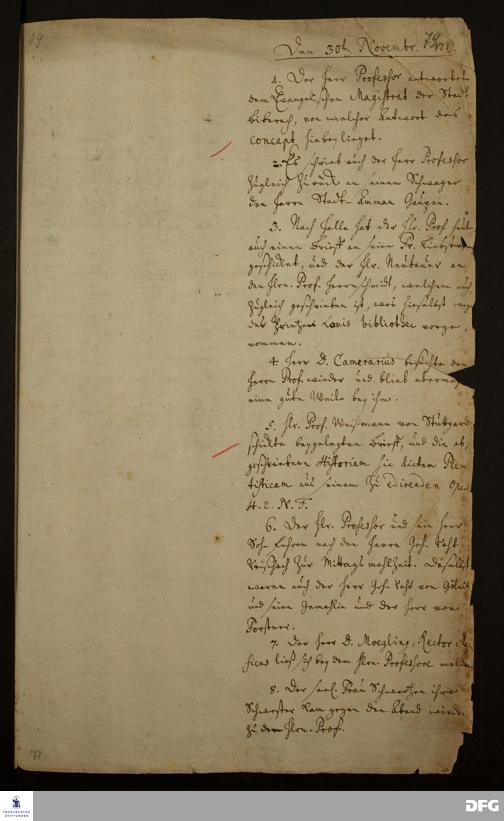 19
79
Den 30t. Novembr. 1717.
1. Der Herr Professor antwortete
dem Evangelischen Magistrat der Stadt
Biberach, von welcher Antwort das
Concept hiebey lieget.
2. Es schrieb auch der Herr Professor
zugleich zurück an seinen Schwager
den Herrn Stadt-Amman Gaupen.
3. Nach Halle hat der Hr. Prof. heut
auch einen Brieff an seine Fr. Liebste
geschickt, und der Hr. Neubauer an
den Hrn. Prof. Herrnschmidt, welchem auch
zugleich geschrieben ist, was hieselbst
des Printzen Louis bibliothec vorge-
nommen.
4. Herr D. Camerarius besuchte den
Herrn Prof. wieder und blieb abermal
eine gute Weile bey ihm.
5. Hr. Prof. Weißmann von Stuttgard
schickte beygelegten Brieff, und die ab-
geschriebene Historiam sic dictam Pie-
tisticam aus seinem zu edirenden
H. E. N. T.
6. Der Hr. Professor und sein Herr
Sohn fuhren nach dem Herrn Geh. Raht
zur Mittags mahlzeit. Daselbst
waren auch der Herr Geh. Raht von
und seine Gemahlin und der Herr von
Forstner.
7. Der Herr D. Moegling, Rector
ficus ließ sich bey dem Hrn. Professore melden
8. Der seel. Frau Schwartzen ihre
Schwester kam gegen den Abend wieder
zu dem Hrn. Prof.
FRANCKESCHE
STIFTUNGEN
DFG